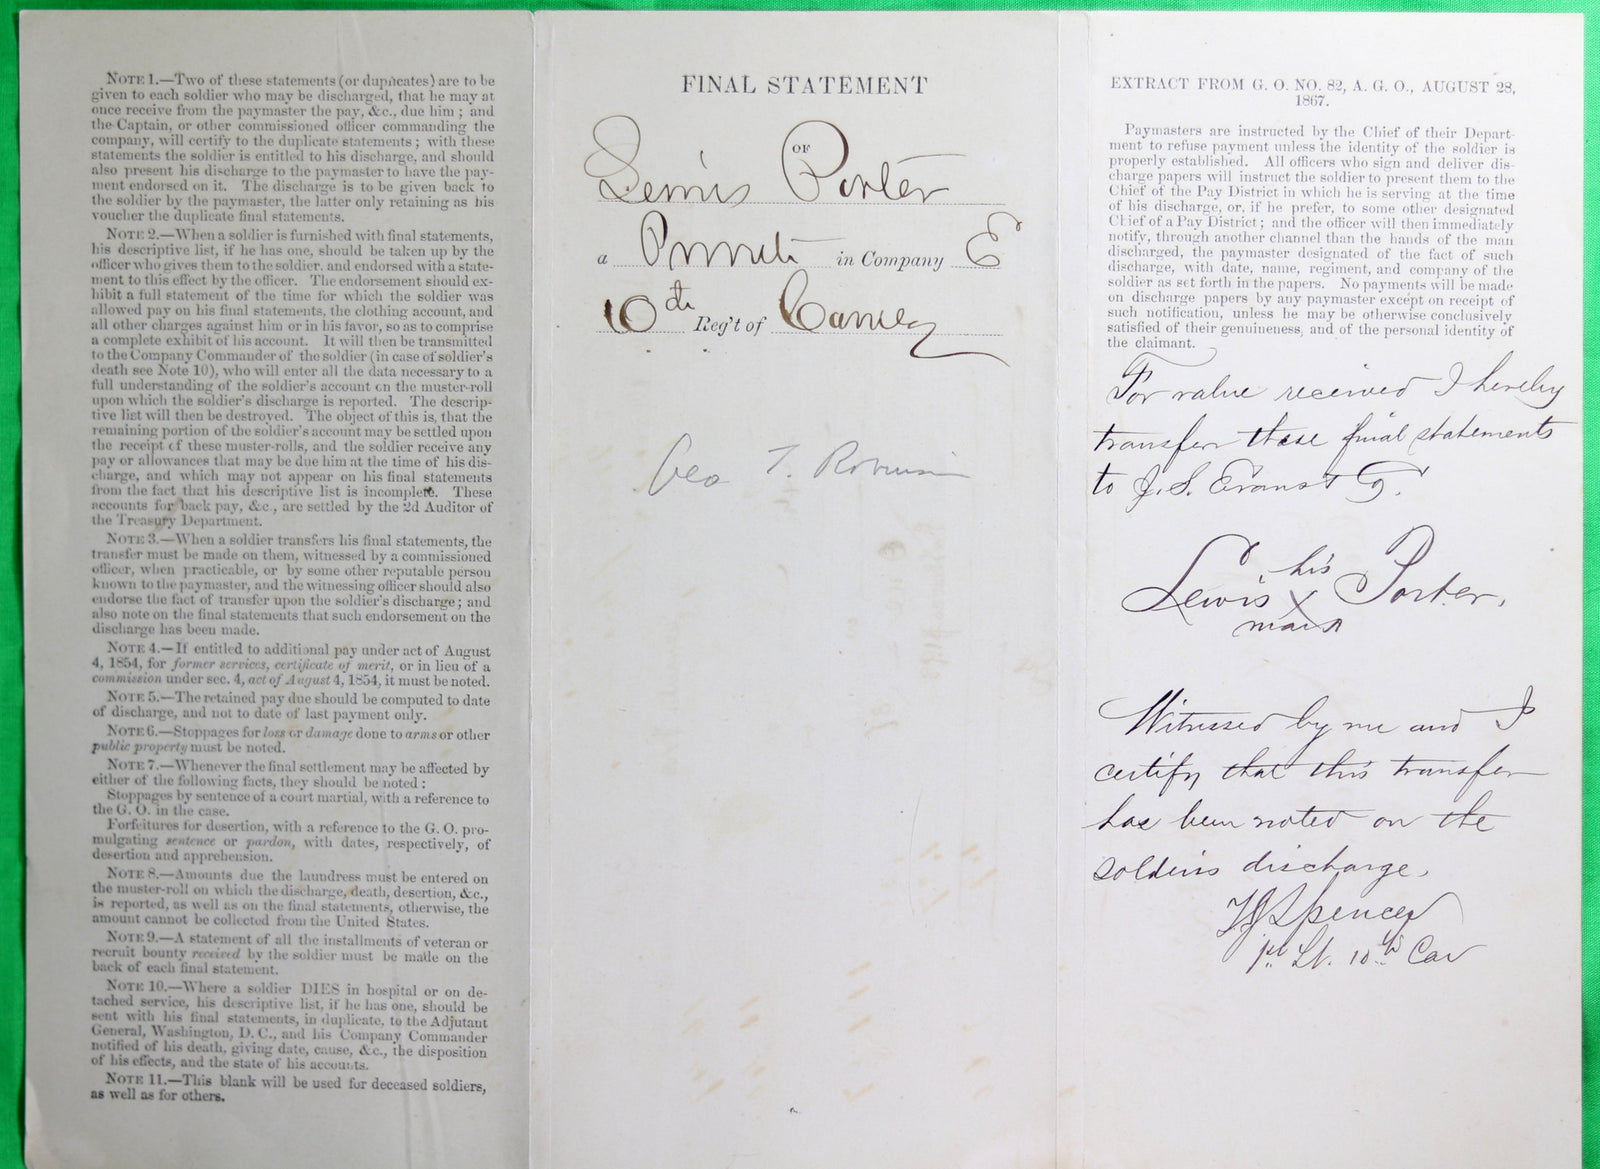 NOTE 1.—Two of these statements (or duplicates) are to be
given to each soldier who may be discharged, that he may at
once receive from the paymaster the pay, &c., due him ; and
the Captain, or other commissioned officer commanding the
company, will certify to the duplicate statements ; with these
statements the soldier is entitled to his discharge, and should
also present his discharge to the paymaster to have the pay-
ment endorsed on it. The discharge is to be given back to
the soldier by the paymaster, the latter only retaining as his
voucher the duplicate final statements.
NOTE 2.—When a soldier is furnished with final statements,
his descriptive list, if he has one, should be taken up by the
officer who gives them to the soldier. and endorsed with a state-
ment to this effect by the officer. The endorsement should ex-
hibit a full statement of the time for which the soldier was
allowed pay on his final statements, the clothing account, and
all other charges against him or in his favor, so as to comprise
a complete exhibit of his account. It will then be transmitted
to the Company Commander of the soldier (in case of soldier's
death see Note 10), who will enter all the data necessary to a
full understanding of the soldier's account on the muster-roll
upon which the soldier's discharge is reported. The descrip-
tive list will then be destroyed. The object of this is, that the
remaining portion of the soldier's account may be settled upon
the receipt of these muster-rolls, and the soldier receive any
pay or allowances that may be due him at the time of his dis-
charge, and which may not appear on his final statements
from the fact that his descriptive list is incomplete. These
accounts for back pay, &c., are settled by the 2d Auditor of
the Treasury Department.
NOTE 3.—When a soldier transfers his final statements, the
transfer must be made on them, witnessed by a commissioned
officer, when practicable, or by some other reputable person
known to the paymaster, and the witnessing officer should also
endorse the fact of transfer upon the soldier's discharge ; and
also note on the final statements that such endorsement on the
discharge has been made.
NOTE 4.—If entitled to additional pay under act of August
4, 1854, for former services, certificate of merit, or in lieu of a
commission under sec. 4, act of August 4, 1854, it must be noted.
NOTE 5.—The retained pay due should be computed to date
of discharge, and not to date of last payment only.
NOTE 6.—Stoppages for loss or damage done to arms or other
public property must be noted.
NOTE 7.—Whenever the final settlement may be affected by
either of the following facts, they should be noted :
Stoppages by sentence of a court martial, with a reference to
the G. O. in the case.
Forfeitures for desertion, with a reference to the G. O. pro-
mulgating sentence or pardon, with dates, respectively, of
desertion and apprehension.
NOTE 8.—Amounts due the laundress must be entered on
the muster-roll on which the discharge, death, desertion, &c.,
is reported, as well as on the final statements, otherwise, the
amount cannot be collected from the United States.
NOTE 9.—A statement of all the installments of veteran or
recruit bounty received by the soldier must be made on the
back of each final statement.
NOTE 10.—Where a soldier DIES in hospital or on de-
tached service, his descriptive list, if he has one, should be
sent with his final statements, in duplicate, to the Adjutant
General, Washington, D. C., and his Company Commander
notified of his death, giving date, cause, &c., the disposition
of his effects, and the state of his accounts.
NOTE 11.—This blank will be used for deceased soldiers,
as well as for others.
FINAL STATEMENT
OF
Lewis Porter
a Private in Company E
10th Reg't of Cavalry
Geo T. Robinson
EXTRACT FROM G. O. NO. 82, A. G. O., AUGUST 28,
1867.
Paymasters are instructed by the Chief of their Depart-
ment to refuse payment unless the identity of the soldier is
properly established. All officers who sign and deliver dis-
charge papers will instruct the soldier to present them to the
Chief of the Pay District in which he is serving at the time
of his discharge, or, if he prefer, to some other designated
Chief of a Pay District ; and the officer will then immediately
notify, through another channel than the hands of the man
discharged, the paymaster designated of the fact of such
discharge, with date, name, regiment, and company of the
soldier as set forth in the papers. No payments will be made
on discharge papers by any paymaster except on receipt of
such notification, unless he may be otherwise conclusively
satisfied of their genuineness, and of the personal identity of
the claimant.
For value received I hereby
transfer these final statements
to J. S. Evans &
his
Lewis X Porter.
mark
Witnessed by me and I
certify that this transfer
has been noted on the
soldiers discharge.
Spencer
1st Lt. 10th Cav